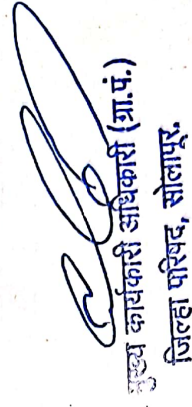 मुख्य कार्यकारी अधिकारी (ग्रा.पं.)
जिल्हा परिषद, सोलापूर.